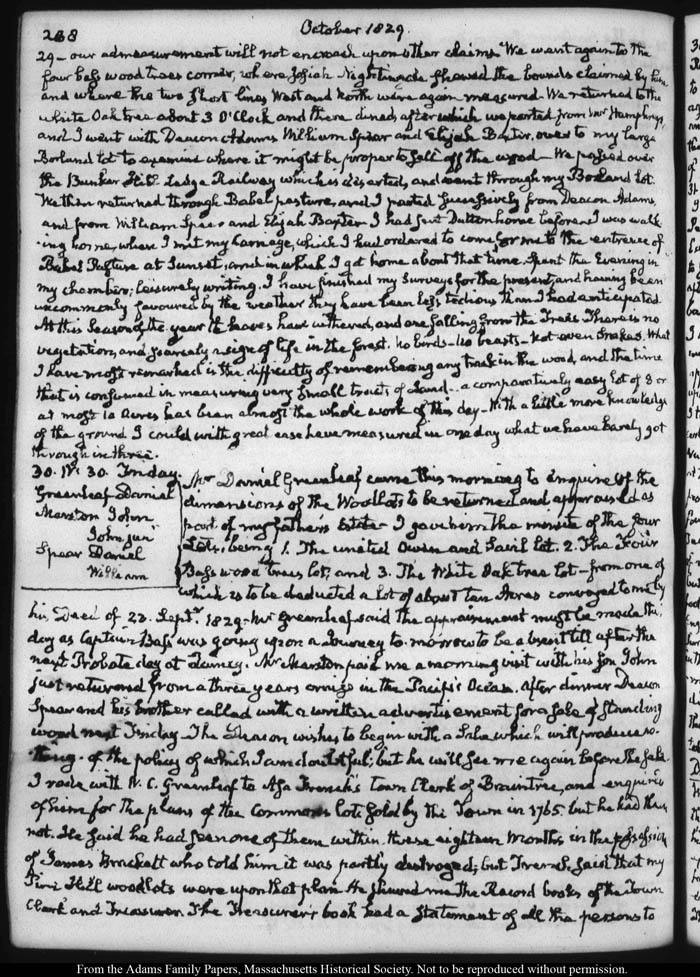 268
October 1829.
29 — our admeasurement will not encroach upon other claims. We went again to the
four bass wood trees corner, where Josiah Nightingale shewed the bounds claimed by him
and where the two short lines West and North were again measured. We returned to the
white Oak tree about 3 O'Clock and there dined, after which we parted from Mr Humphrey,
and I went with Deacon Adams, William Spear and Elijah Baxter, over to my large
Borland lot to examine where it might be proper to sell off the wood — We passed over
the Bunker Hill Ledge Railway which is deserted, and went through my Borland lot.
We then returned through Babel pasture, and I parted successively from Deacon Adams,
and from William Spear and Elijah Baxter. I had sent Dutton home before. I was walk
-ing home, where I met my Carriage, which I had ordered to come for me to the entrance of
Babel Pasture at Sunset, and in which I got home about that time. Spent the Evening in
my chamber; leisurely writing. I have finished my surveys for the present, and having been
uncommonly favoured by the weather they have been less tedious than I had anticipated.
At this Season of the year the leaves have withered, and are falling from the Trees. There is no
vegetation, and scarcely a sign of life in the forest. No birds — No beasts — Not even Snakes. What
I have most remarked is the difficulty of remembering any track in the wood, and the time
that is consumed in measuring very small tracts of Land — a comparatively easy lot of 8 or
at most 10 Acres has been almost the whole work of this day — With a little more knowledge
of the ground I could with great ease have measured in one day what we have barely got
through in three.
30. IV: 30. Friday.
Greenleaf Daniel
Marston John
John jun
Spear Daniel
William
Mr Daniel Greenleaf came this morning to enquire of the
dimensions of the Woodlots to be returned and appraised as
part of my fathers Estate — I gave him the minute of the four
Lots, being 1. The united Owen and Savil lot. 2. The Four
Bass wood trees lot, and 3. The White Oak tree lot — from one of
which is to be deducted a lot of about ten Acres conveyed to me by
his Deed of 23. Septr 1829 — Mr Greenleaf said the appraisement must be made this
day as Captain Bass was going upon a Journey to-morrow to be absent till after the
next Probate day at Quincy. Mr Marston paid me a morning visit with his Son John
just returned from a three years cruize in the Pacific Ocean. After dinner Deacon
Spear and his brother called with a written advertisement for a sale of standing
wood next Friday — The Deacon wishes to begin with a Sale which will produce no-
thing — of the policy of which I am doubtful; but he will see me again before the sale
I rode with W. C. Greenleaf to Asa French's Town Clerk of Braintree, and enquired
of him for the plans of the Commons lots sold by the Town in 1765. but he had them
not. He said he had seen one of them within these eighteen Months in the possession
of James Brackett who told him it was partly destroyed; but French said that my
Pine Hill woodlots were upon that plan. He shewed me the Record books of the Town
Clerk and Treasurer. The Treasurer's book had a Statement of all the persons to
From the Adams Family Papers, Massachusetts Historical Society. Not to be reproduced without permission.